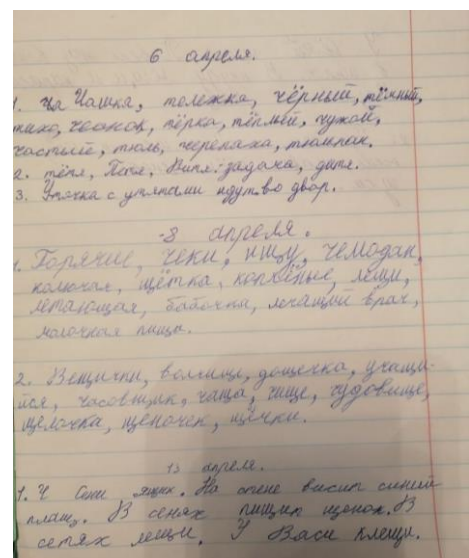 6 апреля.
1. Ча Чашка, тележка, чёрный, тёмный,
тихо, чеснок, тёрка, тёплый, чужой,
частый, тюль, черепаха, тюльпан.
2. тётя, Петя, Витя: задача, дитя.
3. Уточка с утятами идут во двор.
8 апреля.
1. Горячие, чеки, ищу, чемодан,
колючая, щётка, копчёные, лещи,
летающая, бабочки, лечащий врач,
молочная пищи.
2. Вещички, волчище, дощечка, учащи-
йся, часовщик, чаща, чище, чудовище,
щёлочка, щеночек, щёчки.
13 апреля.
1. У Сени ящик. На стене висит синий
плащ. В сенях пищит щенок. В
сетях лещи. У Васи клещи.